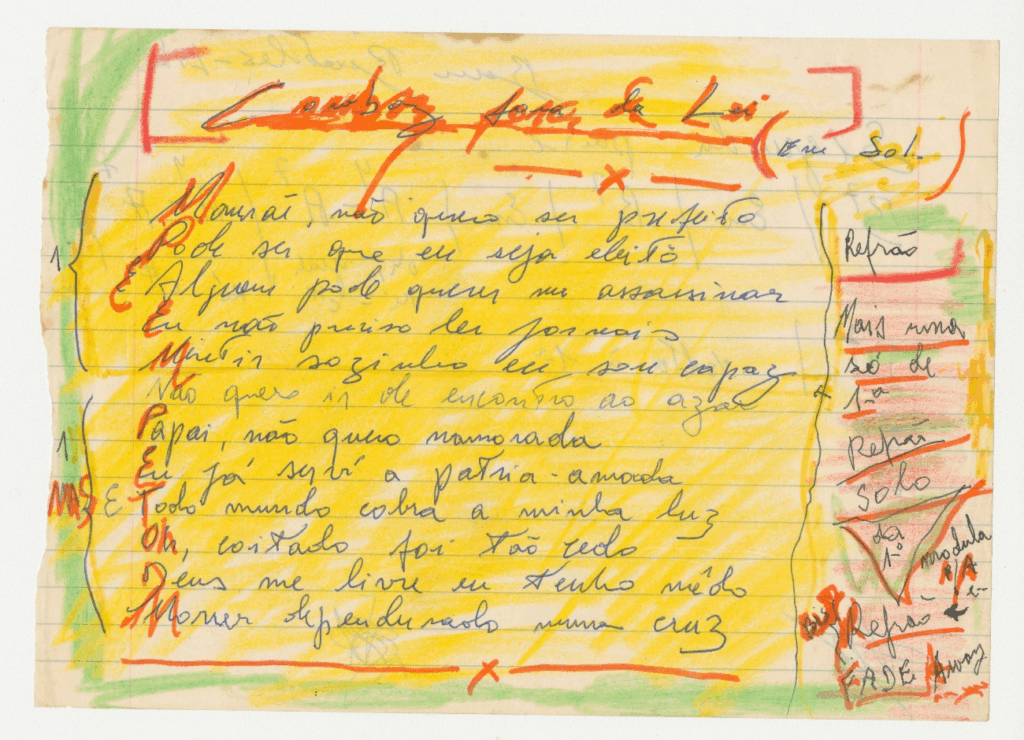 Cowboy fora da Lei
(Em Sol
Mamãe, não quero ser prefeito
Pode ser que eu seja eleito
E Alguem pode querer me assassinar
Eu não preciso ler jornais
Mentir sozinho eu sou capaz
Não quero ir de encontro ao azar
Papai, não quero namorada
Eu já serví a patria-amada
MAS E Todo mundo cobra a minha luz
Oh, coitado foi tão cedo
Deus me livre eu tenho mêdo
Morrer dependurado numa cruz
1
1
Refrão
Mais uma
só de
1ª
Refrão
Solo
da
1ª
modula
p/A
Bis
Refrão
FADE Away